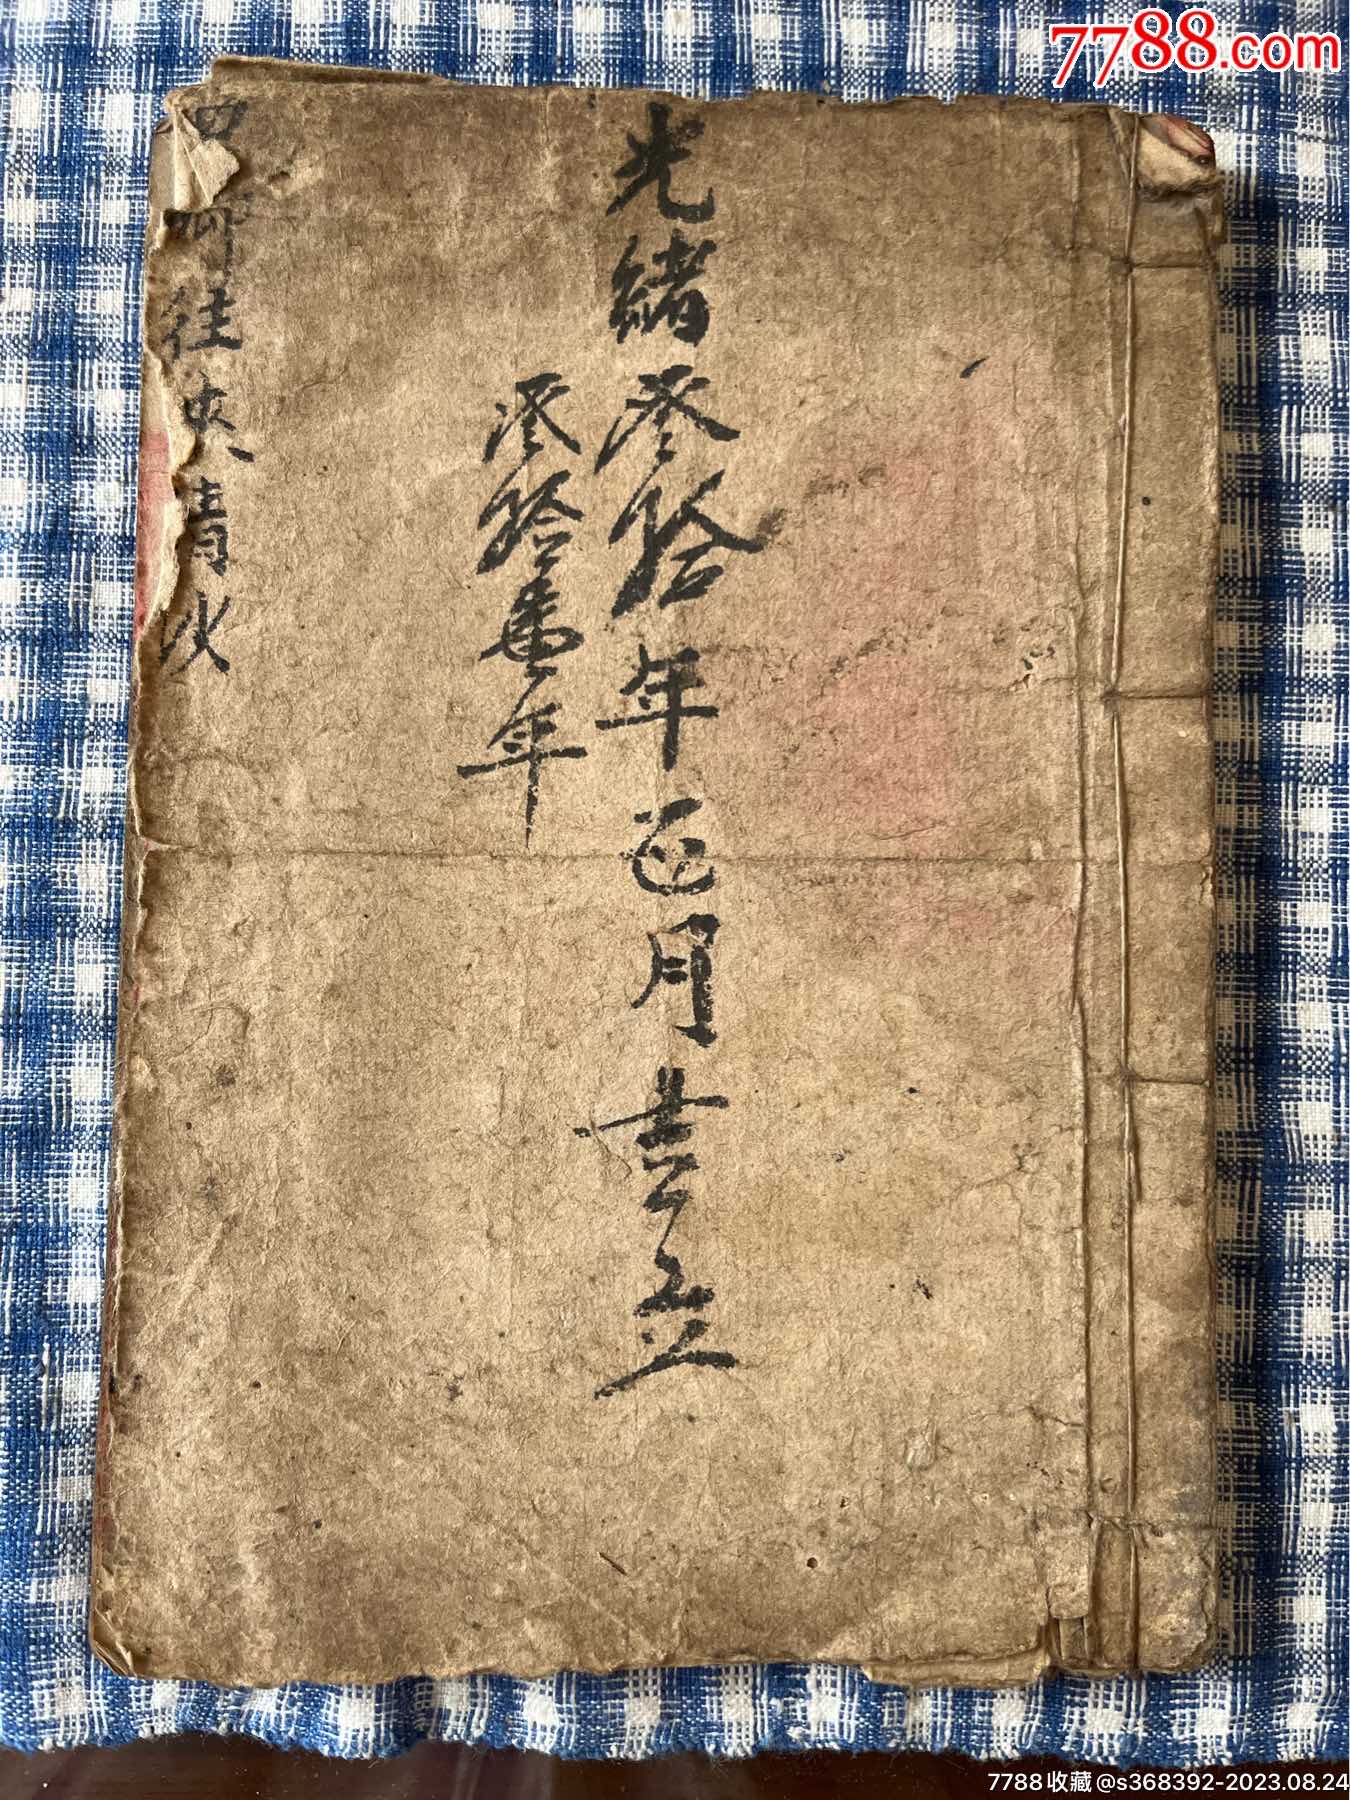 7788.com
光緒叁拾年正月吉立
叁拾壹年
鄉往來清次
7788收藏@s368392-2023.08.24